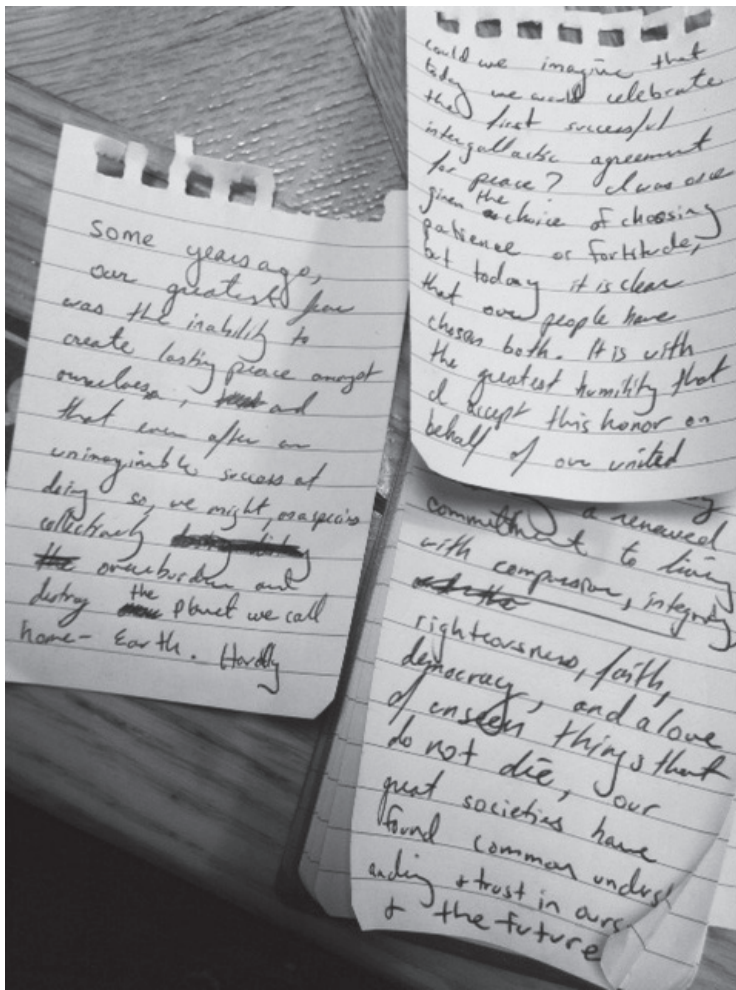 some years ago,
our greatest fear
was the inability to
create lasting peace amongst
ourselves, and
that even after an
unimaginable success at
doing so, we might, as a species
collectively
overburden and
destroy the planet we call
home - Earth. Hardly
could we imagine that
today we would celebrate
the first successful
intergallactic agreement
for peace? I was once
given the choice of choosing
patience or fortitude,
but today it is clear
that our people have
chosen both. It is with
the greatest humility that
I accept this honor on
behalf of our united
a renewed
commitment to living
with compassion, integrity
righteousness, faith,
democracy, and a love
of unseen things that
do not die, our
great societies have
found common underst
anding + trust in ours
+ the future